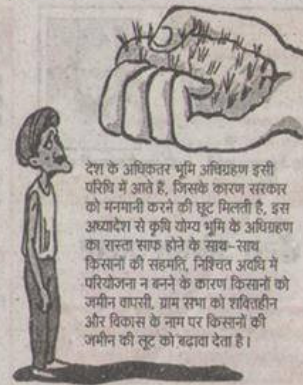 देश के अधिकतर भूमि अधिग्रहण इसी
परिधि में आते हैं, जिसके कारण सरकार
को मनमानी करने की छूट मिलती है, इस
अध्यादेश से कृषि योग्य भूमि के अधिग्रहण
का रास्ता साफ होने के साथ-साथ
किसानों की सहमति, निश्चित अवधि में
परियोजना न बनने के कारण किसानों को
जमीन वापसी, ग्राम सभा को शक्तिहीन
और विकास के नाम पर किसानों की
जमीन की लूट को बढ़ावा देता है।